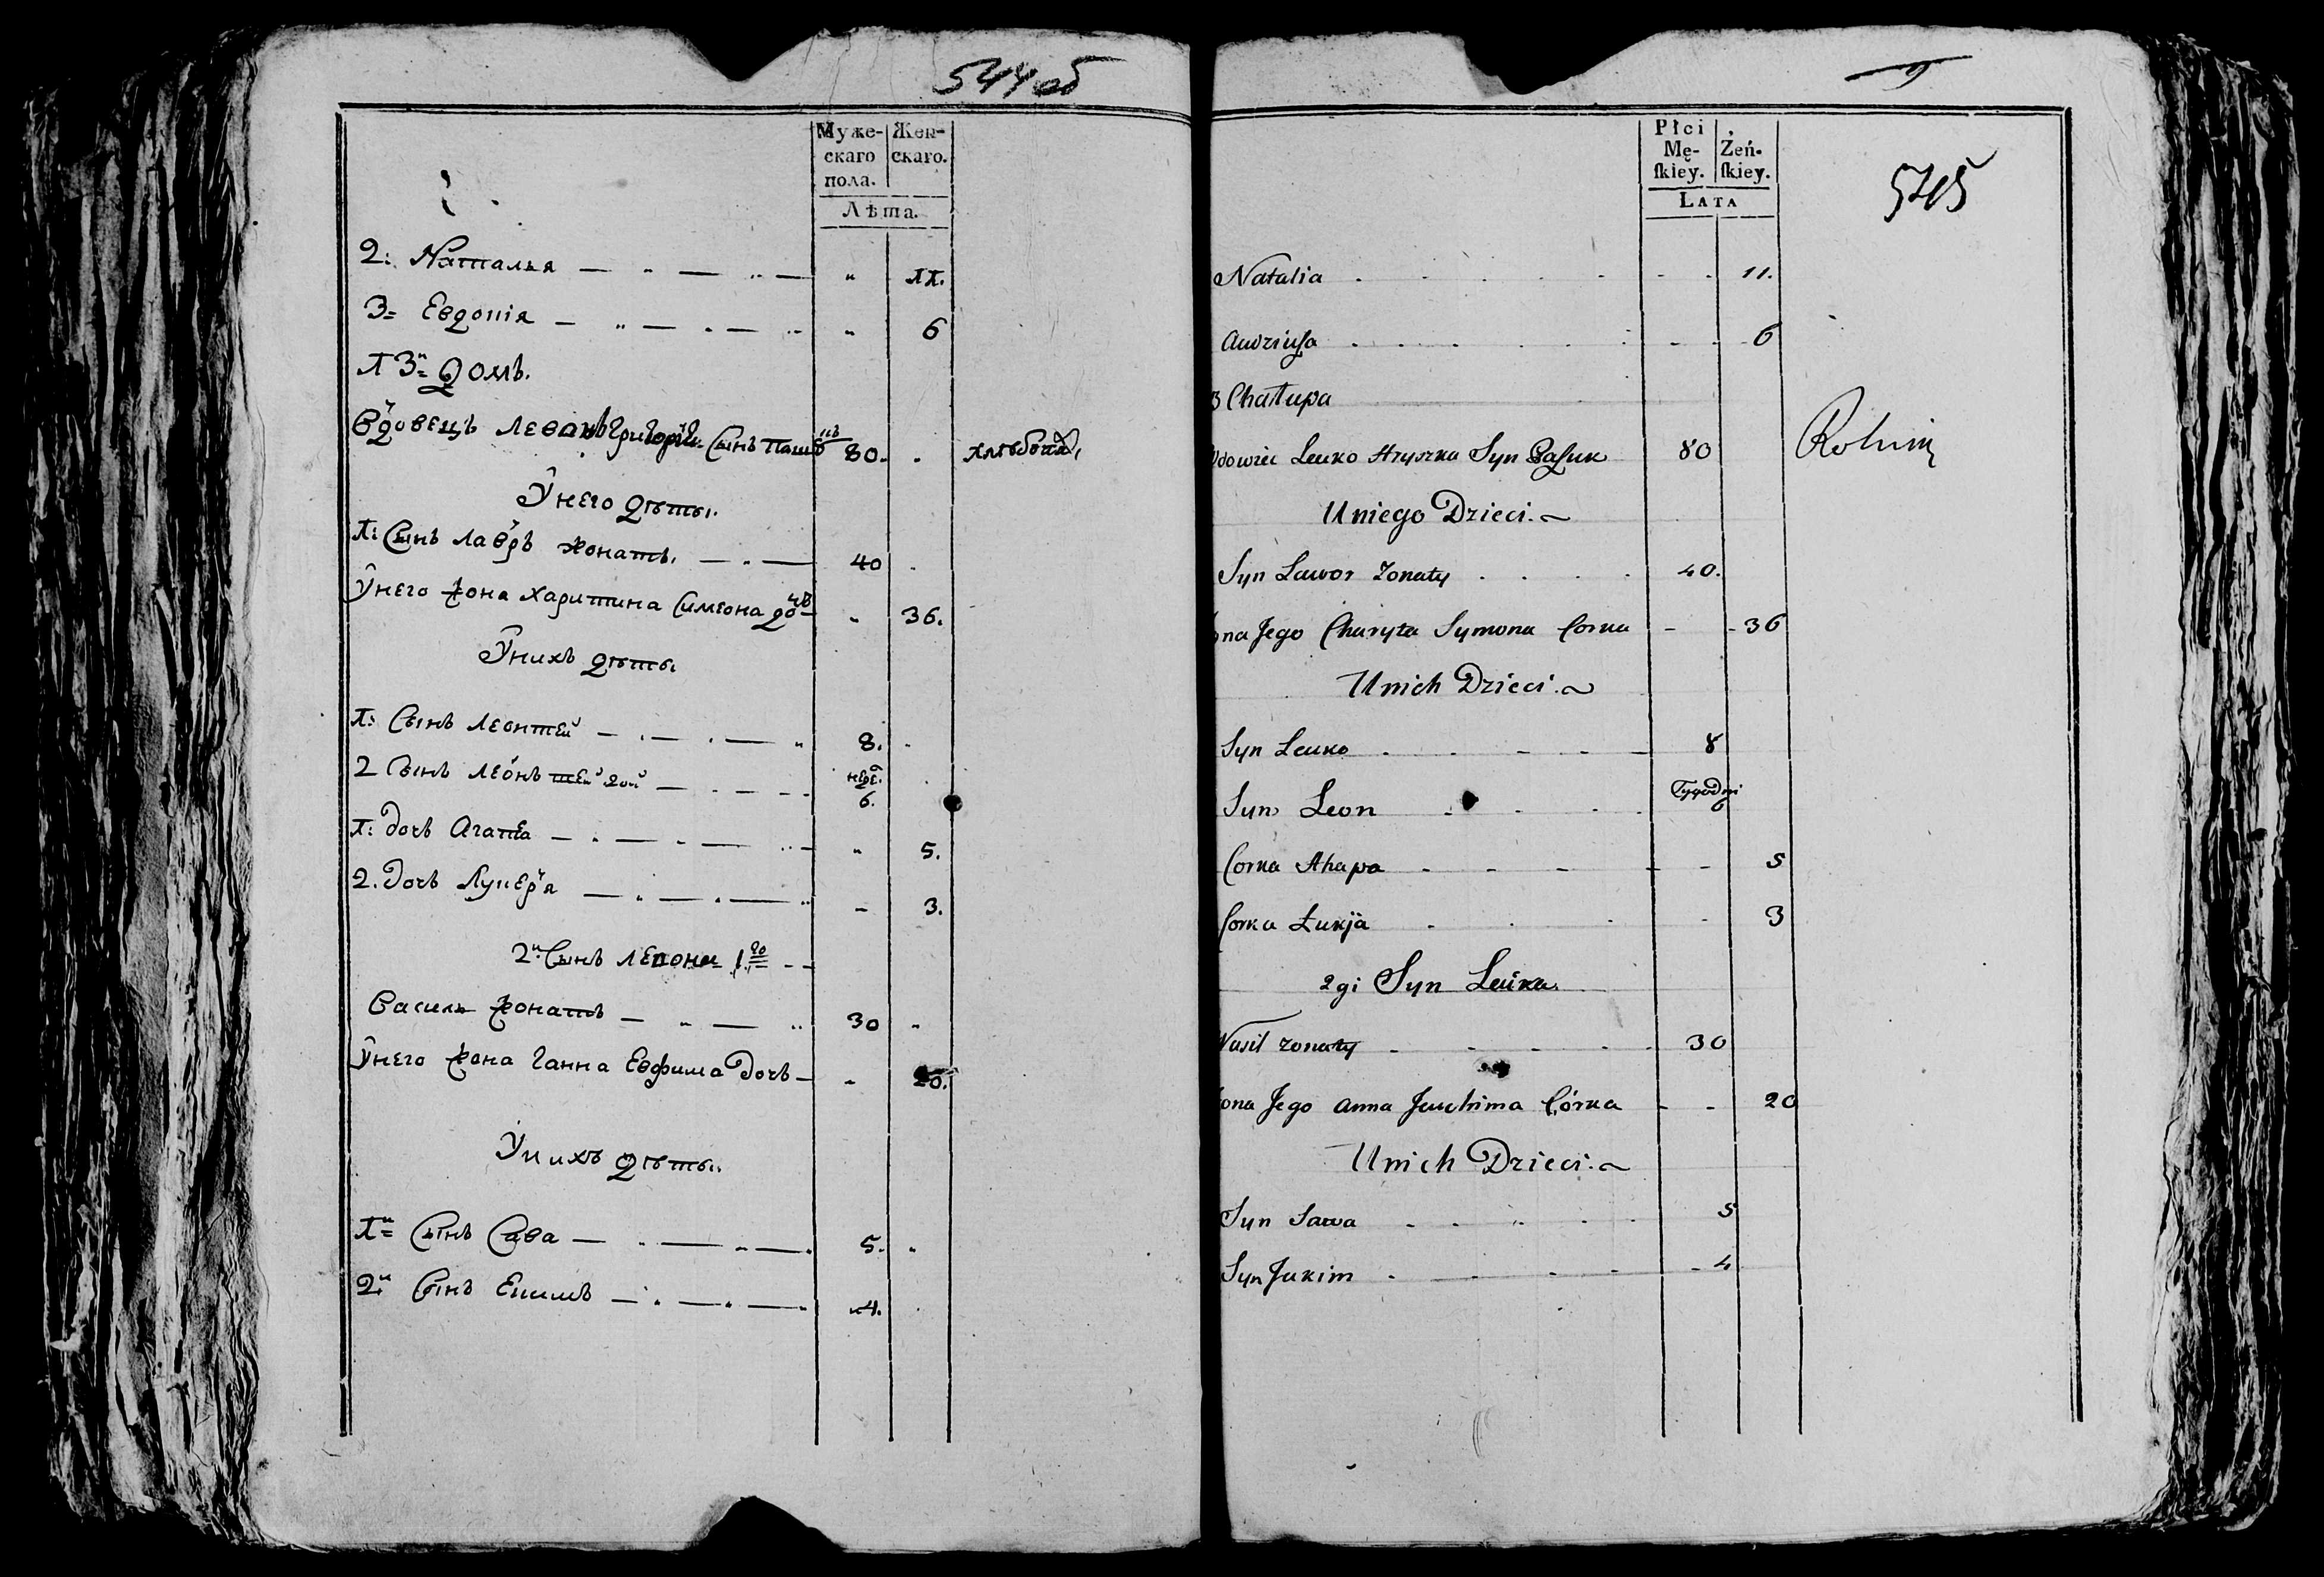 544 об
Муже-скаго пола.
Жен-скаго.
Лѣта.
2: Наталья " 11.
3= Евдокія " 6
13= Домъ.
Вдовецъ Леванъ Григорія Сынъ 80.
хлѣбопа,
Унего дѣты.
1: Сынъ Лавръ жонатъ. 40
Унего жона Харитина Симеона дочь " 36.
Унихъ дѣты
1: Сынъ Леонтей 8.
2 Сынъ Леонътей 2ой неде. 6.
1: дочь Агапа " 5.
2. дочь Лукерія - 3.
2й Сынъ Левона 1го
Василь жонатъ 30
Унего жона Ганна Евфима дочь - 20.
Унихъ дѣты.
1й= Сынъ Сава 5.
2й Сынъ Екимъ 4.
545
Płci Mę-ſkiey.
Żeń-ſkiey.
LATA
Natalia 11.
6
3 Chałupa
Leuko Hryszka Syn 80
Rolnik
Uniego Dzieci.
Syn Lawor Zonaty 40.
Jego Charyta Symona Corka 36
Unich Dzieci.
Syn Leuko 8
Syn Leon Tygodni 6
Corka Ahapa 5
Corka Łukja 3
2gi Syn Leuka
Wasil zonaty 30
Jego Anna Jauchima Córka 20
Unich Dzieci.
Syn Sawa 5
Syn Jakim 4